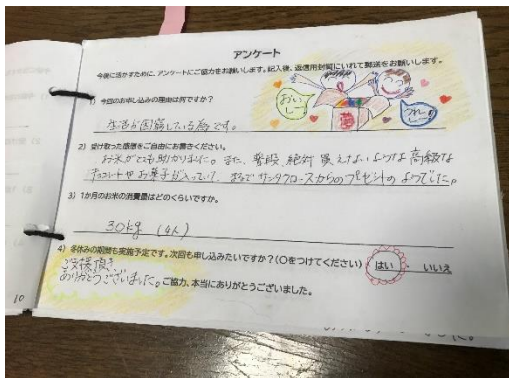 アンケート
今後に活かすために、アンケートにご協力をお願いします。記入後、返信用封筒にいれて郵送をお願いします。
1) 今回のお申し込みの理由は何ですか?
生活が困窮している為です。
おいしー
うれしー
2) 受け取った感想をご自由にお書きください。
お米がとても助かりました。また、普段、絶対買えないような高級な
チョコレートやお菓子が入っていて、まるでサンタクロースからのプレゼントのようでした。
3) 1か月のお米の消費量はどのくらいですか。
30kg (4人)
4) 冬休みの期間も実施予定です。次回も申し込みたいですか?(〇をつけてください) はい ・ いいえ
ご支援頂き
ありがとうございました。ご協力、本当にありがとうございました。
10